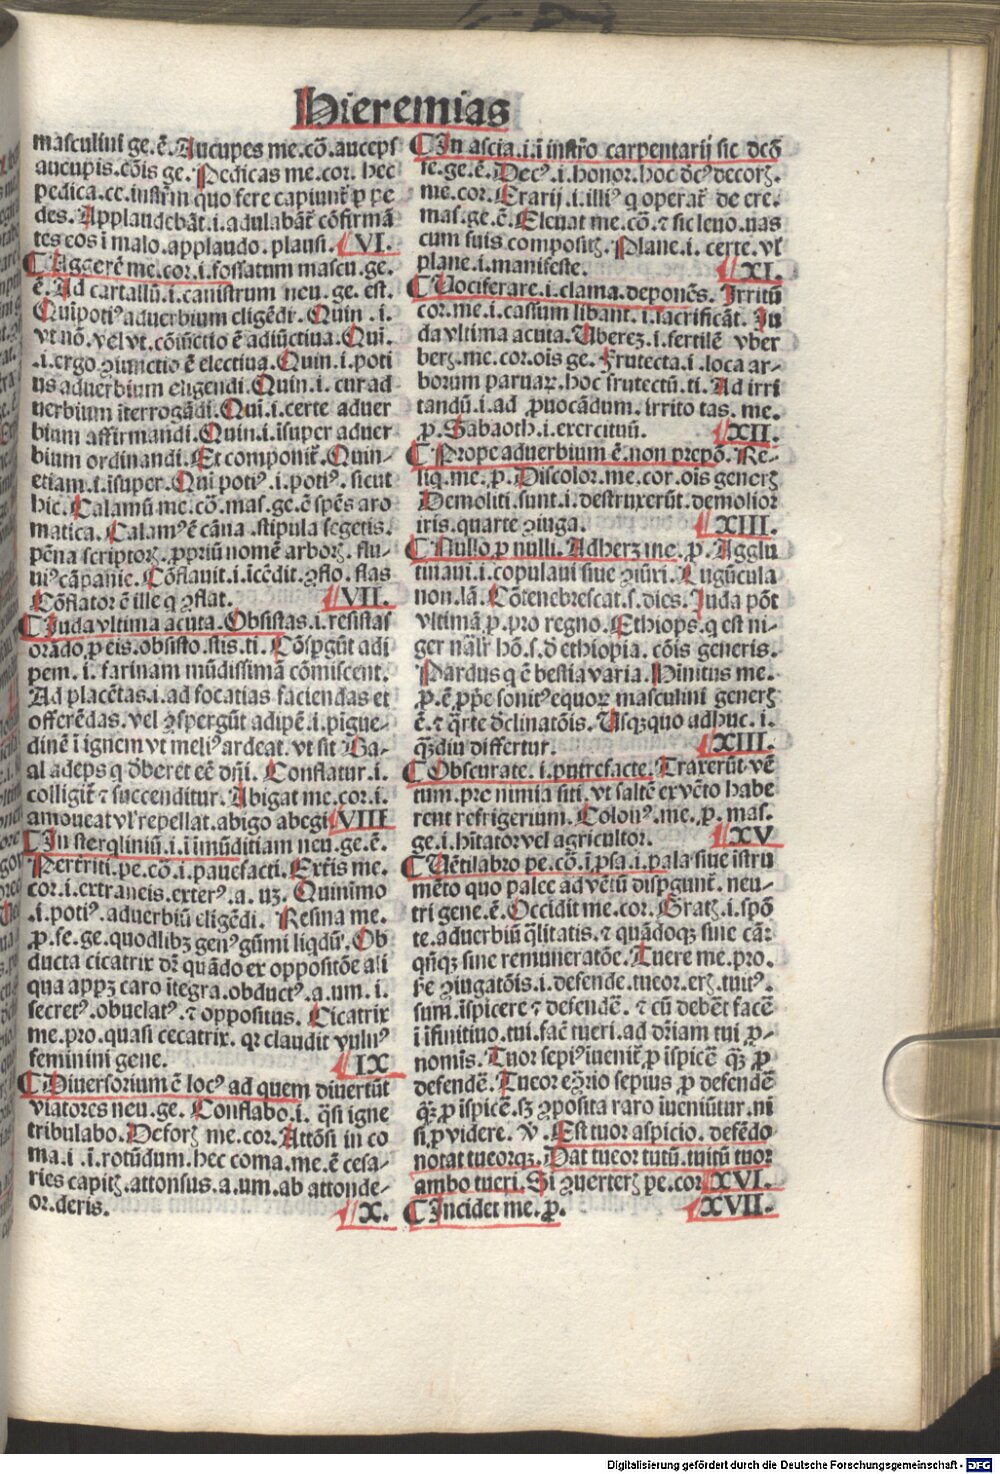 Hieremias
masculini ge. ē. Aucupes me. cō. auceps
aucupis. cōis ge. Pedicas me. cor. hec
pedica. ce. instr̄m quo fere capiunt̄ ꝑ pe
des. Applaudebāt .i. adulabāt̄ cōfirmā
tes eos ī malo. applaudo. plausi. VI.
Aggerē me. cor. i. fossatum mascu. ge.
ē. Ad cartallū .i. canistrum neu. ge. est.
Quīpotiꝰ aduerbium eligēdi. Quin .i.
vt nō. vel vt. cōiūctio ē adiūctiua. Quī.
.i. ergo ꝯiunctio ē electiua. Quin .i. poti
us aduerbium eligendi. Quin .i. cur ad
uerbium īterrogādi. Quī .i. certe aduer
bium affirmandi. Quin .i. īsuper aduer
bium ordinandi. Et componit̄. Quin-
etiam .i. īsuper. Qui potiꝰ .i. potiꝰ. sicut
hic. Calamū me. cō. mas. ge. ē spēs aro
matica. Calamꝰ ē cāna. stipula segetis.
pēna scriptoꝝ. ꝓpriū nomē arboꝝ. flu-
uiꝰ cāpanie. Cōflauit .i. īcēdit. ꝯflo. flas
Cōflator ē ille q ꝯflat. VII.
Iuda vltima acuta. Obsistas .i. resistas
orādo. ꝓ eis. obsisto. stis. ti. Cōspgūt adi
pem .i. farinam mūdissimā cōmiscent.
Ad placētas .i. ad focatias faciendas et
offerēdas. vel ꝯspergūt adipē .i. pīgue-
dinē ī ignem vt meliꝰ ardeat. vt sit Ba-
al adeps q dꝫberet eē dn̄i. Conflatur .i.
colligit̄ ⁊ succenditur. Abigat me. cor. i.
amoueat vl̄ repellat. abigo abegi VIII
In sterqliniū .i. ī īmūditiam neu. ge. ē.
Perterriti. pe. cō. i. pauefacti. Exteris me.
cor. i. extraneis. exterꝰ. a. uꝫ. Quinīmo
.i. potiꝰ. aduerbiū eligēdi. Resina me.
ꝓ. fe. ge. quodlibꝫ genꝰ gūmi liqdū. Ob
ducta cicatrix dr̄ quādo ex oppositōe ali
qua appꝫ caro ītegra. obductꝰ. a. um. i.
secretꝰ. obuelatꝰ. ⁊ oppositus. Cicatrix
me. pro. quasi cecatrix. qꝛ claudit vulnꝰ
feminini gene. IX
Diuersorium ē locꝰ ad quem diuertūt
viatores neu. ge. Conflabo .i. q̄si igne
tribulabo. Deforꝫ me. cor. Attōsi in co
ma .i. ī rotūdum. hec coma. me. ē cesa-
ries capitꝭ. attonsus. a. um. ab attonde-
or. deris. X.
In ascia .i. ī instr̄o carpentarij sic dcō
fe. ge. ē. Decꝰ .i. honor. hoc dcꝰ decoꝝ.
me. cor. Erarij .i. illiꝰ q operat̄ de ere.
mas. ge. ē. Eleuat me. cō. ⁊ sic leuo. uas
cum suis compositꝭ. Plane .i. certe. vl̄
plane .i. manifeste. XI.
Vociferare .i. clama. deponēs. Irritū
cor. me. i. cassum libant .i. sacrificāt. Iu
da vltima acuta. Vbereꝫ .i. fertilē vber
berꝭ. me. cor. ois ge. Frutecta .i. loca ar-
borum paruaꝝ. hoc frutectū. ti. Ad irri
tandū .i. ad ꝓuocādum. irrito tas. me.
ꝓ. Sabaoth .i. exercituū. XII.
Prope aduerbium ē. non prepō. Re-
liq. me. ꝓ. Discolor. me. cor. ois generꝭ
Demoliti sunt .i. destruxerūt. demolior
iris. quarte ꝯiuga. XIII.
Nullo ꝓ nulli. Adherꝫ me. ꝓ. Agglu
tinaui .i. copulaui siue ꝯiūxi. Lugūcula
non. lā. Cōtenebrescat. s. dies. Iuda pōt
vltimā ꝓ. pro regno. Ethiops. q est ni-
ger nālr̄ hō. s. d̄ ethiopia. cōis generis.
Pardus q ē bestia varia. Hinitus me.
ꝓ. ē ꝓpe sonitꝰ equoꝝ masculini generꝭ
ē. ⁊ q̄rte d̄clinatōis. Vsqꝫquo adhuc .i.
q̄ꝫdiu differtur. XIII.
Obscurate .i. putrefacte. Traxerūt vē
tum. pre nimia siti. vt saltē ex vēto habe
rent refrigerium. Colonꝰ. me. ꝓ. mas.
ge. i. hītator vel agricultor. XV
Vētilabro pe. cō. ī ꝓsa .i. pala siue īstru
mēto quo palee ad vētū dispgunt̄. neu-
tri gene. ē. Occidit me. cor. Gratꝭ .i. spō
te. aduerbiū q̄litatis. ⁊ quādoqꝫ sine cā:
qn̄qꝫ sine remuneratōe. Tuere me. pro.
fꝫe ꝯiugatōis .i. defende. tueor. erꝭ. tuitꝰ.
sum. īspicere ⁊ defendē. ⁊ cū debēt facē
ī īfinitiuo. tui. fac̄ tueri. ad dr̄iam tui ꝓ-
nomis. Tuor sepiꝰ īuenit̄ ꝓ īspicē q̄ꝫ ꝓ
defendē. Tueor eꝯ̄rio sepius ꝓ defendē
q̄ꝫ ꝓ īspicē. sꝫ ꝯposita raro īueniūtur. ni
si. ꝓ videre. v̄. Est tuor aspicio. defēdo
notat tueorqꝫ. Dat tueor tutū. tuitū tuor
ambo tueri. Si ꝯuerterꝭ pe. cor XVI.
Incidet me. ꝓ. XVII.
Digitalisierung gefördert durch die Deutsche Forschungsgemeinschaft - DFG